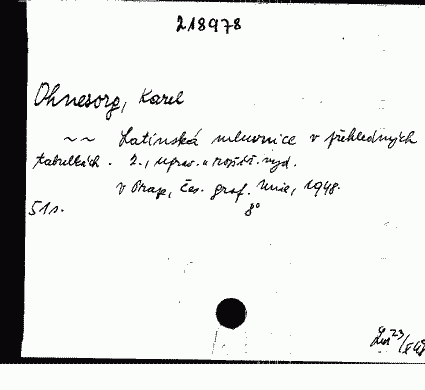 218978
Ohnesorg, Karel
~~ Latinská mluvnice v přehledných
tabulkách. 2., uprav. a rozšíř. vyd.
V Praze, Čes. graf. Unie, 1948.
51 s. 8°